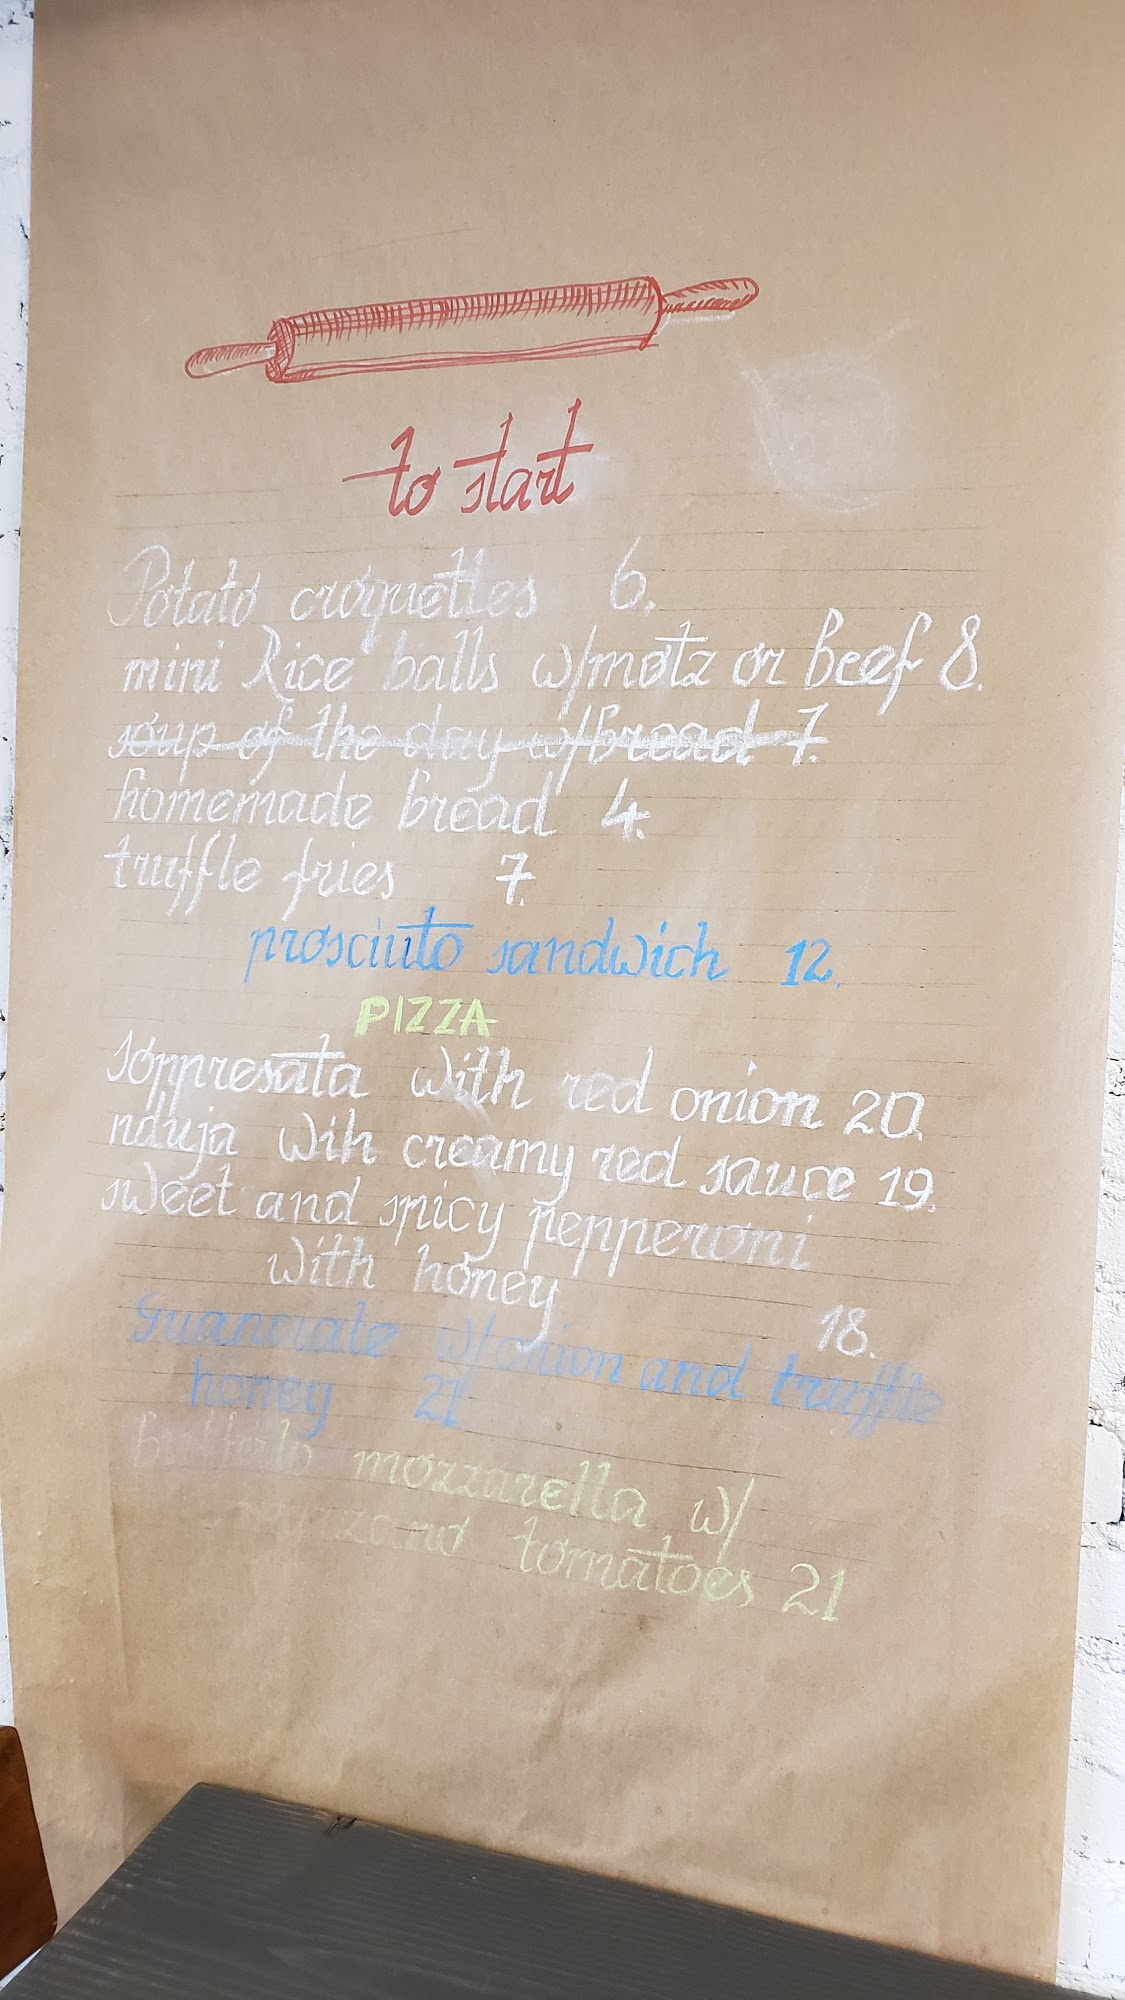 to start
Potato croquettes 6.
mini Rice balls w/motz or beef 8.
soup of the day w/bread 7.
homemade bread 4.
truffle fries 7.
prosciuto sandwich 12.
PIZZA
soppresata with red onion 20.
nduja wih creamy red sauce 19.
sweet and spicy pepperoni
with honey
18.
Guanciale w/onion and truffle
honey 21
buffalo mozzarella w/
tomatoes 21